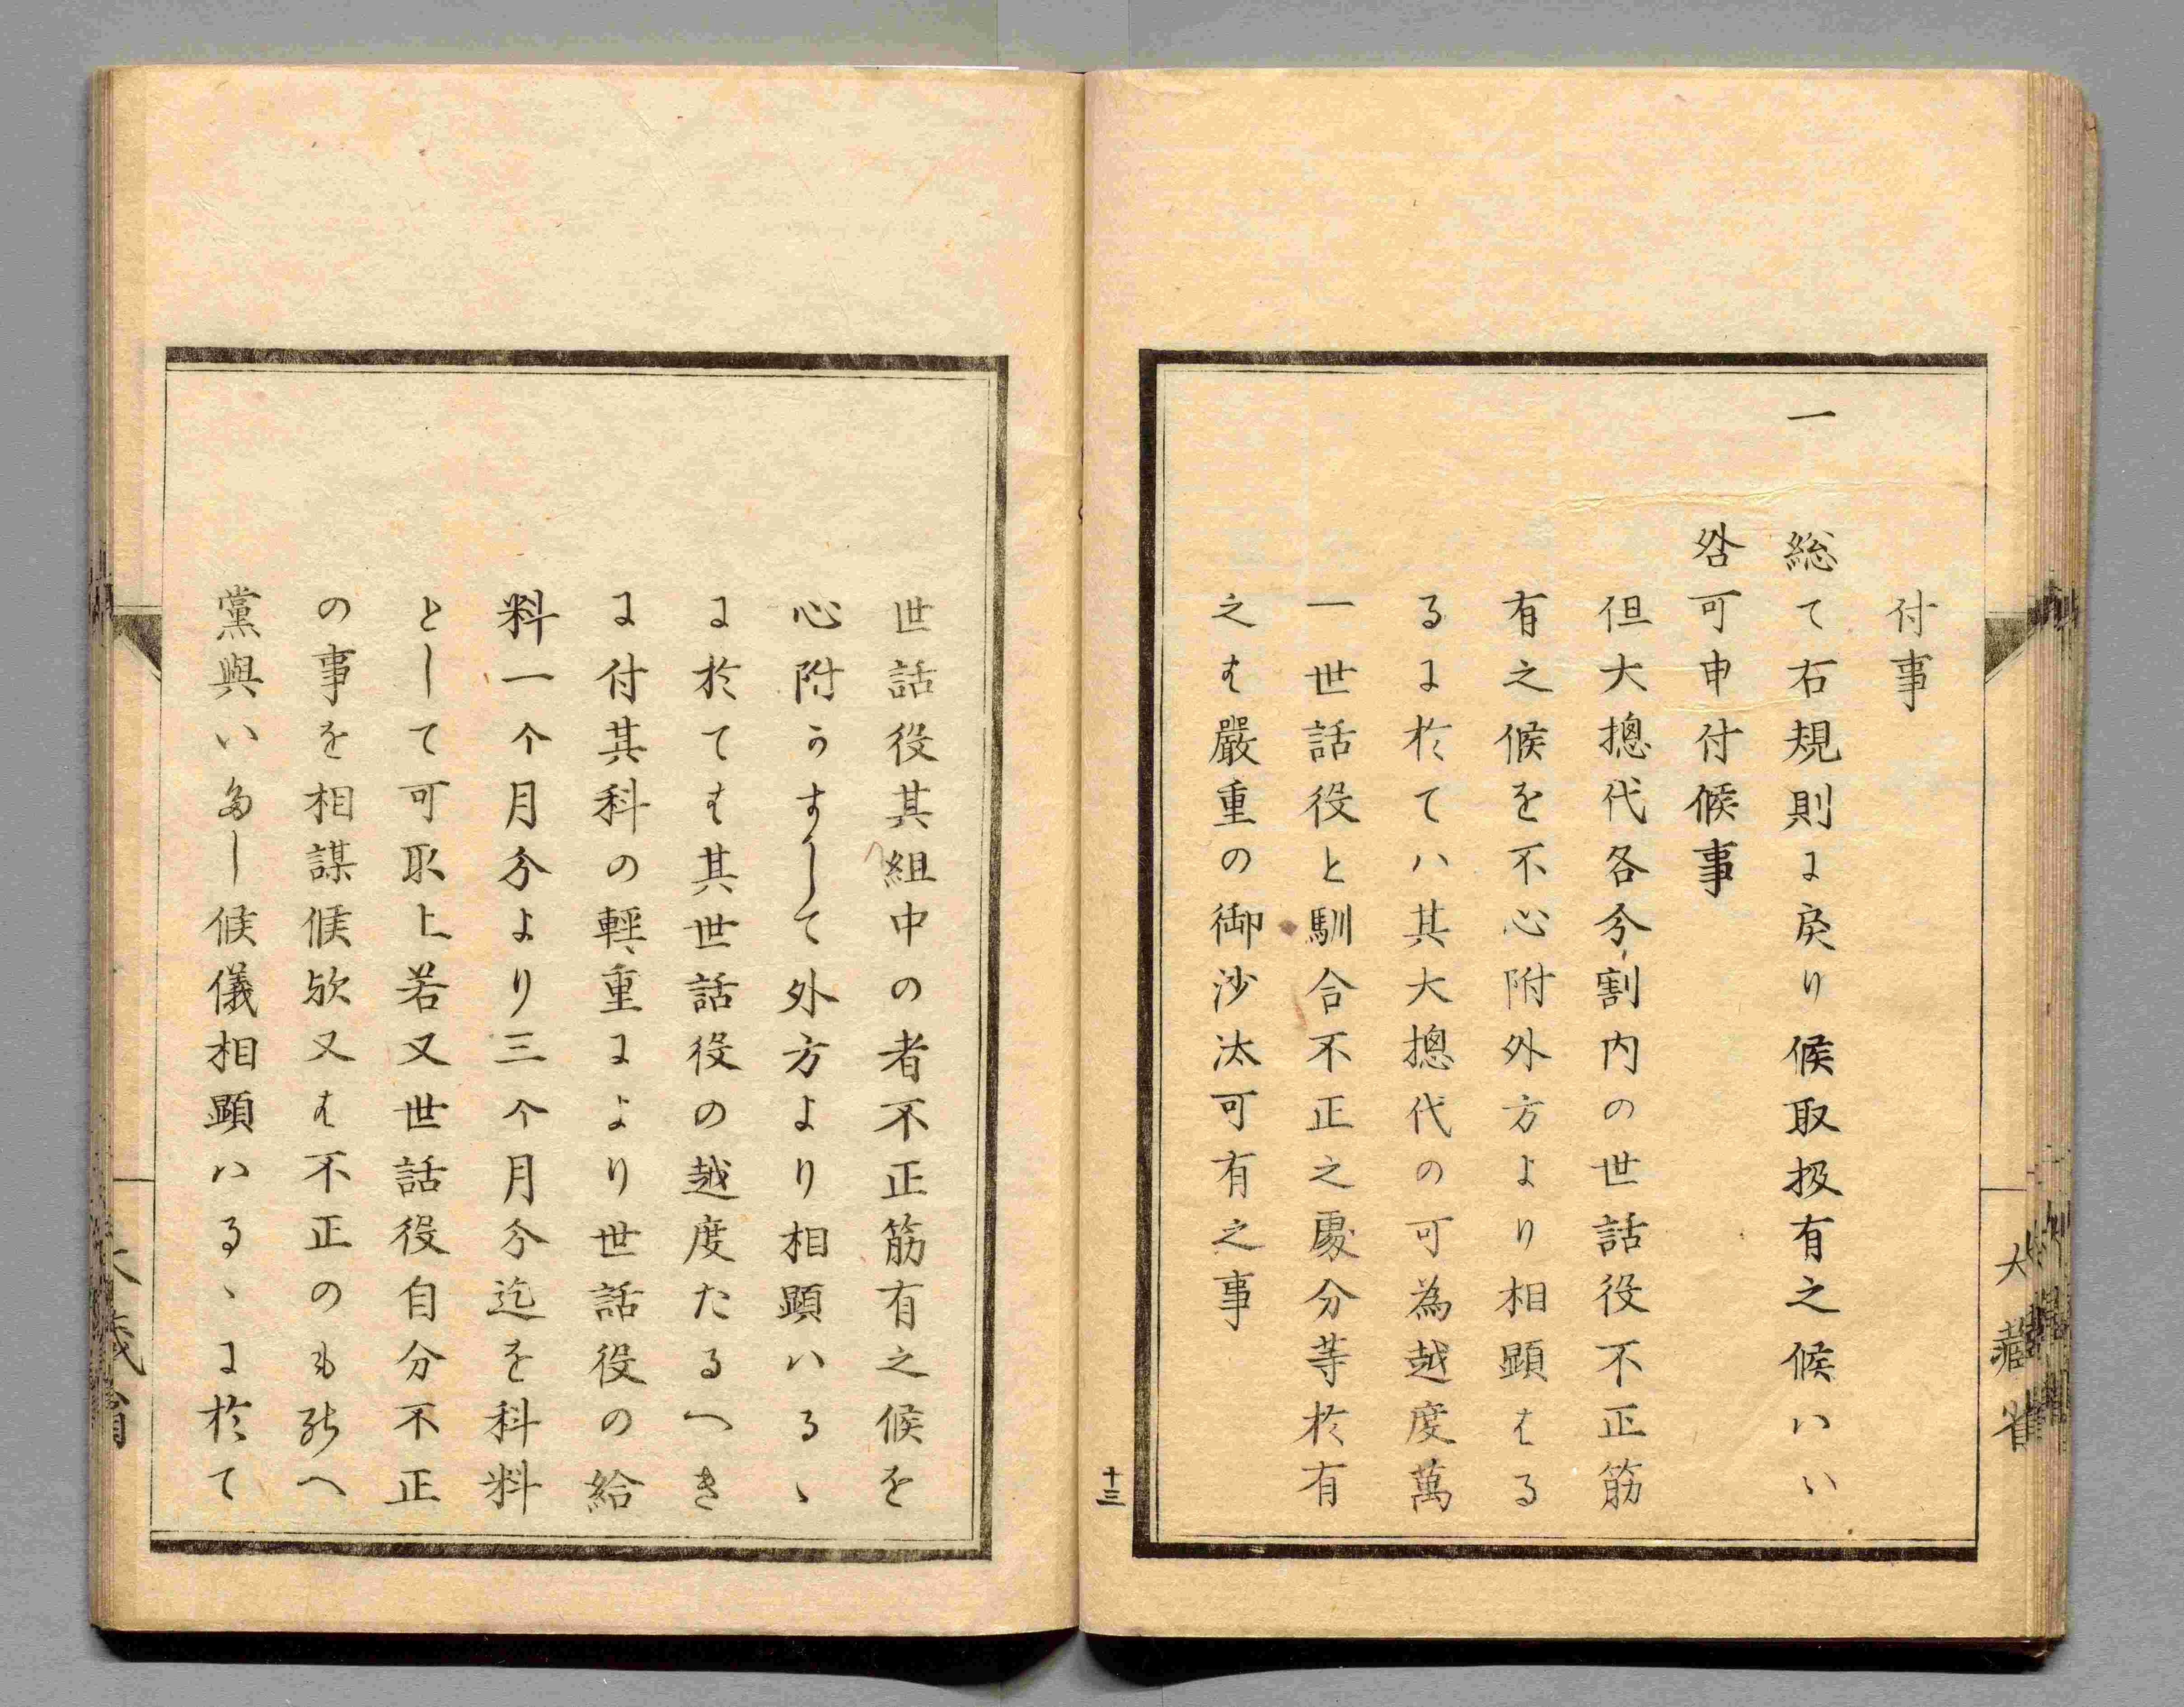 付事
一 総て右規則に戻り候取扱有之候ハゝ
咎可申付候事
但大摠代各分割内の世話役不正筋
有之候を不心附外方より相顕はる
るに於てハ其大摠代の可為越度萬
一世話役と馴合不正之處分等於有
之は嚴重の御沙汰可有之事
十三
大藏省
世話役其組中の者不正筋有之候を
心附かすして外方より相顕ハるゝ
に於ては其世話役の越度たるへき
に付其科の輕重により世話役の給
料一个月分より三个月分迄を科料
として可取上若又世話役自分不正
の事を相謀候欤又は不正のも能へ
黨與いたし候儀相顕ハるゝに於て